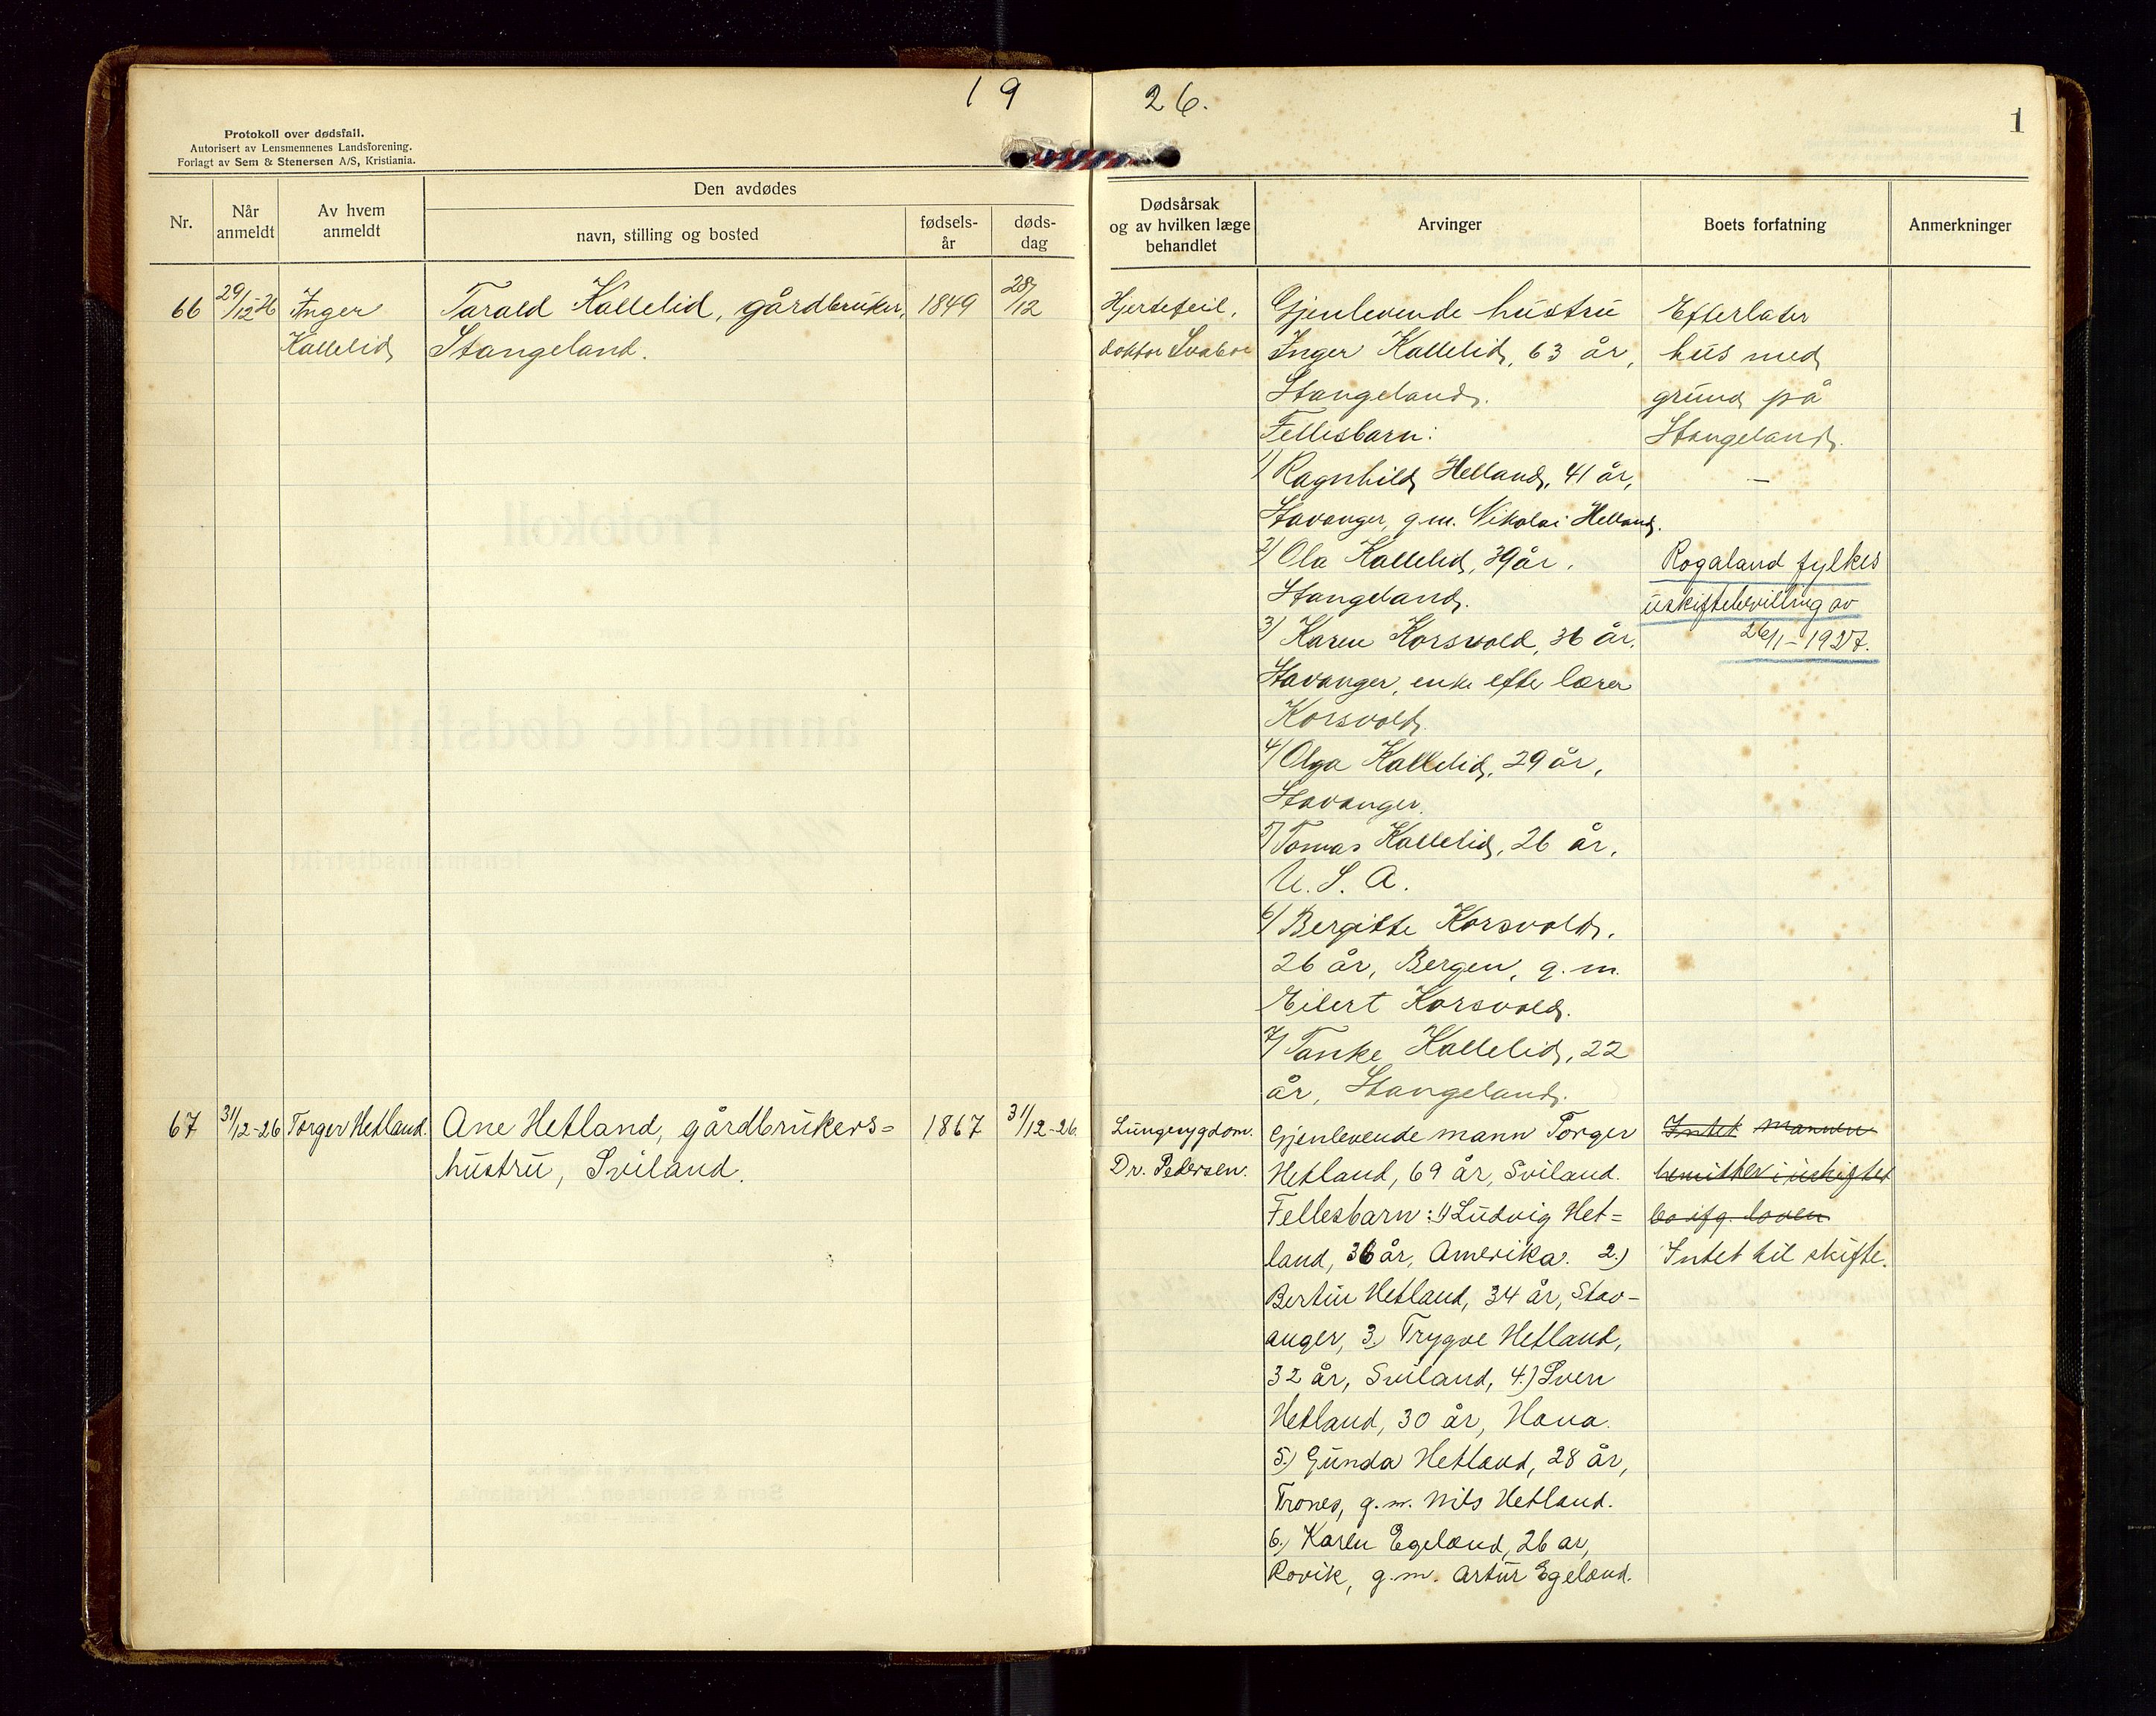 19 26.
1
Protokoll over dødsfall.
Autorisert av Lensmennenes Landsforening.
Forlagt av Sem & Stenersen A/S, Kristiania.
Nr.
Når anmeldt
Av hvem anmeldt
Den avdødes
navn, stilling og bosted
fødsels-år
døds-dag
Dødsårsak
og av hvilken læge
behandlet
Arvinger
Boets forfatning
Anmerkninger
66
29/12-26
Inger
Kallelid
Tarald Kallelid, gårdbruker,
Stangeland.
1849
28/12
Hjertefeil,
doktor Svaboe
Gjenlevende hustru
Inger Kallelid, 63 år,
Stangeland.
Fellesbarn:
1) Ragnhild Helland, 41 år,
Stavanger, g.m. Nikolai Helland.
2) Ola Kallelid, 39 år,
Stangeland.
3) Karen Korsvold, 36 år,
Stavanger, enke efter lærer
Korsvold.
4) Olga Kallelid, 29 år,
Stavanger.
5) Tomas Kallelid, 26 år,
U. S. A.
6) Bergitte Korsvold,
26 år, Bergen, g. m.
Eilert Korsvold.
7) Tanke Kallelid, 22
år, Stangeland.
Efterlater
hus med
grund på
Stangeland.
—
Rogaland fylkes
uskiftebevilling av
26/1-1927.
67
31/12-26
Torger Hetland.
Ane Hetland, gårdbrukers=
hustru, Sviland.
1867
31/12-26.
Lungesygdom.
Dr. Pedersen.
Gjenlevende mann Torger
Hetland, 69 år, Sviland.
Fellesbarn: 1) Ludvig Het=
land, 36 år, Amerika. 2.)
Bertin Hetland, 34 år, Stav-
anger, 3.) Trygve Hetland,
32 år, Sviland, 4.) Sven
Hetland, 30 år, Hana.
5.) Gunda Hetland, 28 år,
Trones, g.m. Nils Hetland.
6.) Karen Egeland, 26 år,
Rovik, g.m. Artur Egeland.
Intet mannen
besitter i uskiftet
bo ifg. loven
Intet til skifte.